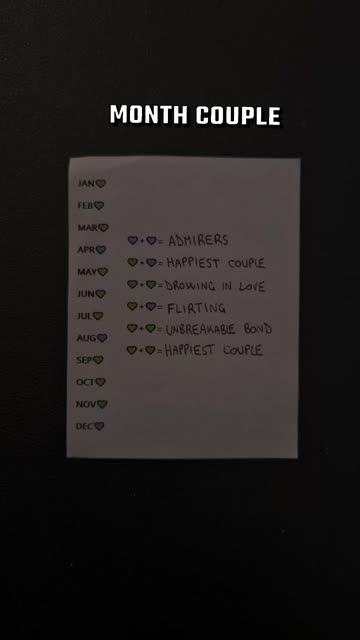 MONTH COUPLE
JAN💛
FEB💜
MAR💛
APR💜
MAY💚
JUN💚
JUL💛
AUG💜
SEP💚
OCT💛
NOV💚
DEC💜
💜+💜= ADMIRERS
💚+💜= HAPPIEST COUPLE
💚+💚= DROWING IN LOVE
💛+💜= FLIRTING
💛+💚= UNBREAKABLE BOND
💛+💛= HAPPIEST COUPLE